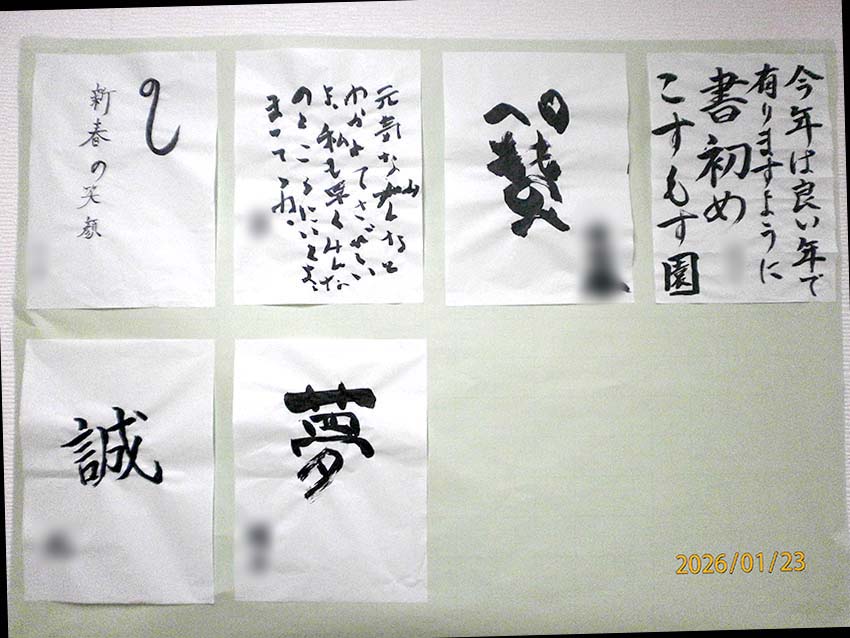 今年は良い年で
有りますように
書初め
こすもす園
元気な
わかれてさびしい
よ、私も早くみんな
のところにいくよ
まっててね
新春の笑顔
夢
誠
2026/01/23